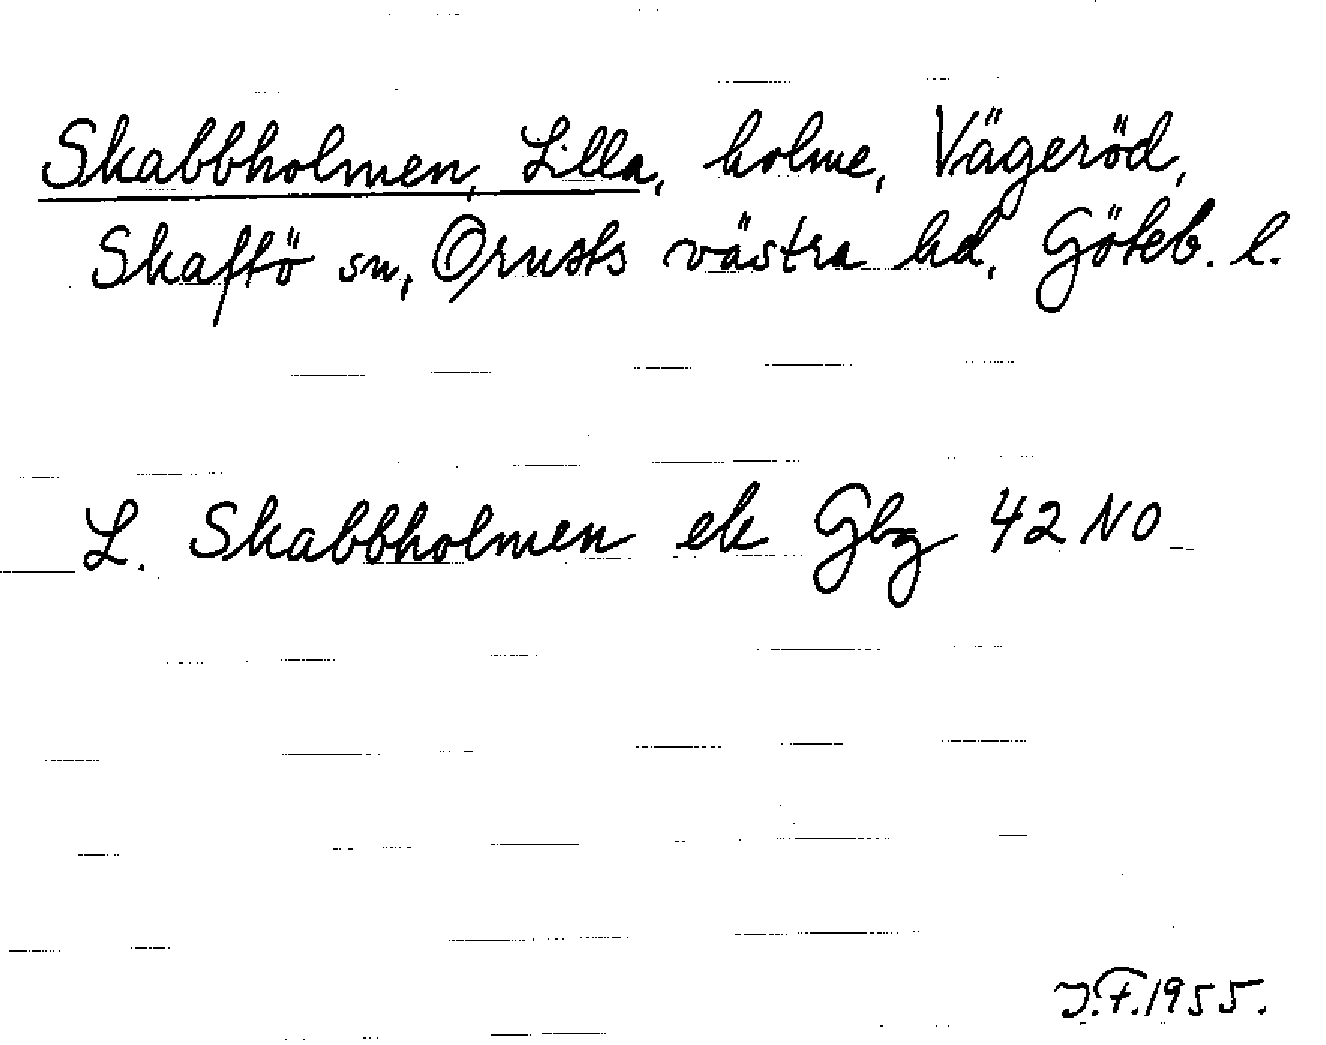 Skabbholmen, Lilla, holme, Vägeröd,
Skaftö sn, Orusts västra hd, Göteb. l.
L. Skabbholmen ek Gbg 42 NO
J.F.1955.